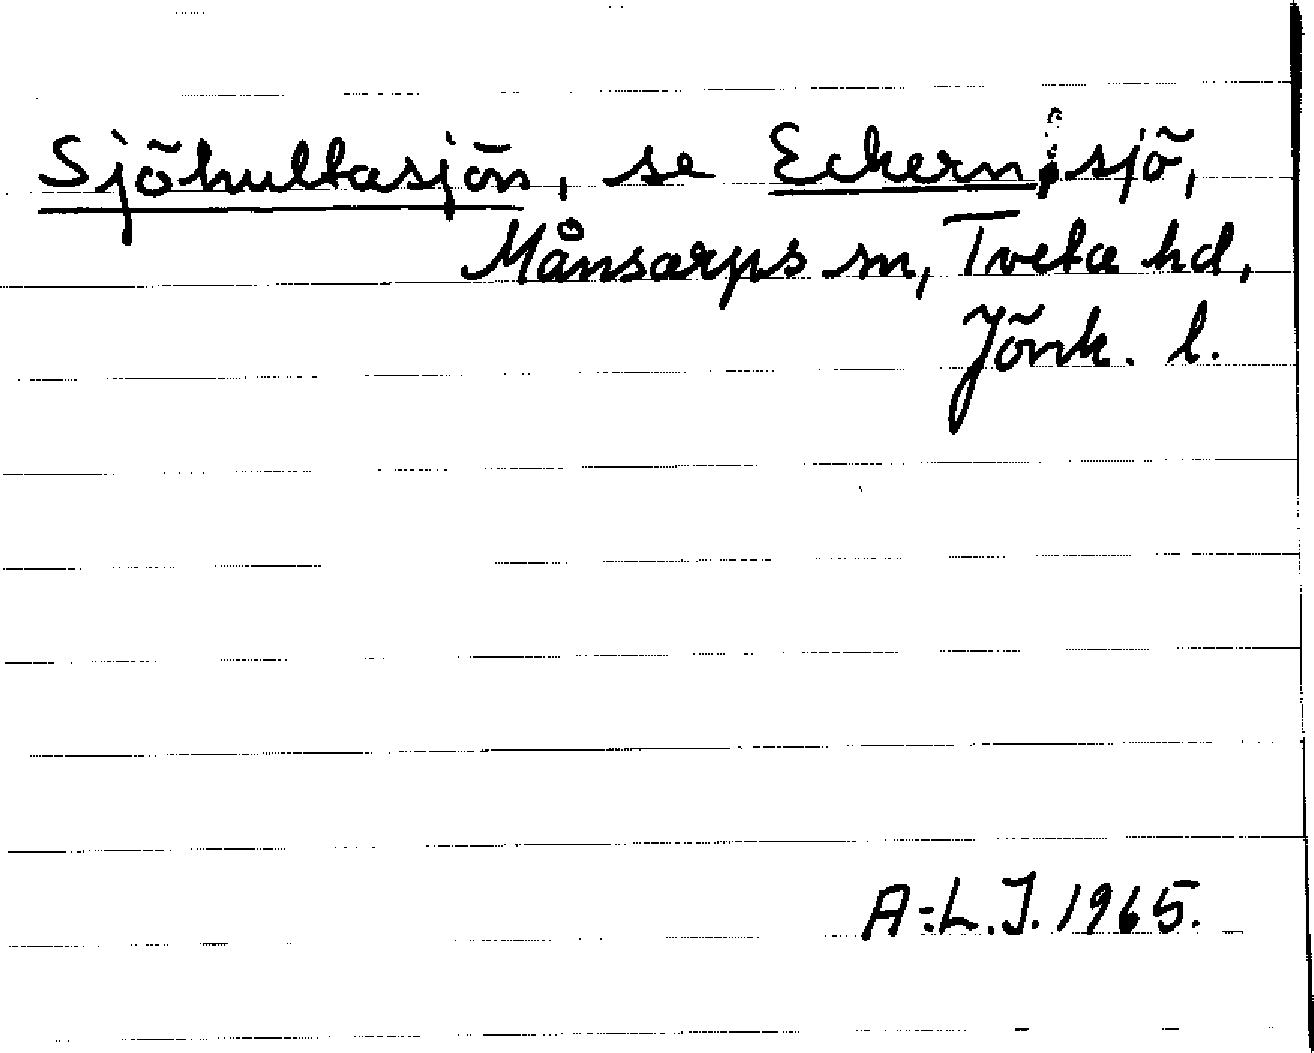 Sjöhultasjön, se Eckern, sjö,
Månsarps sn, Tveta hd,
Jönk. l.
A-L.J. 1965.